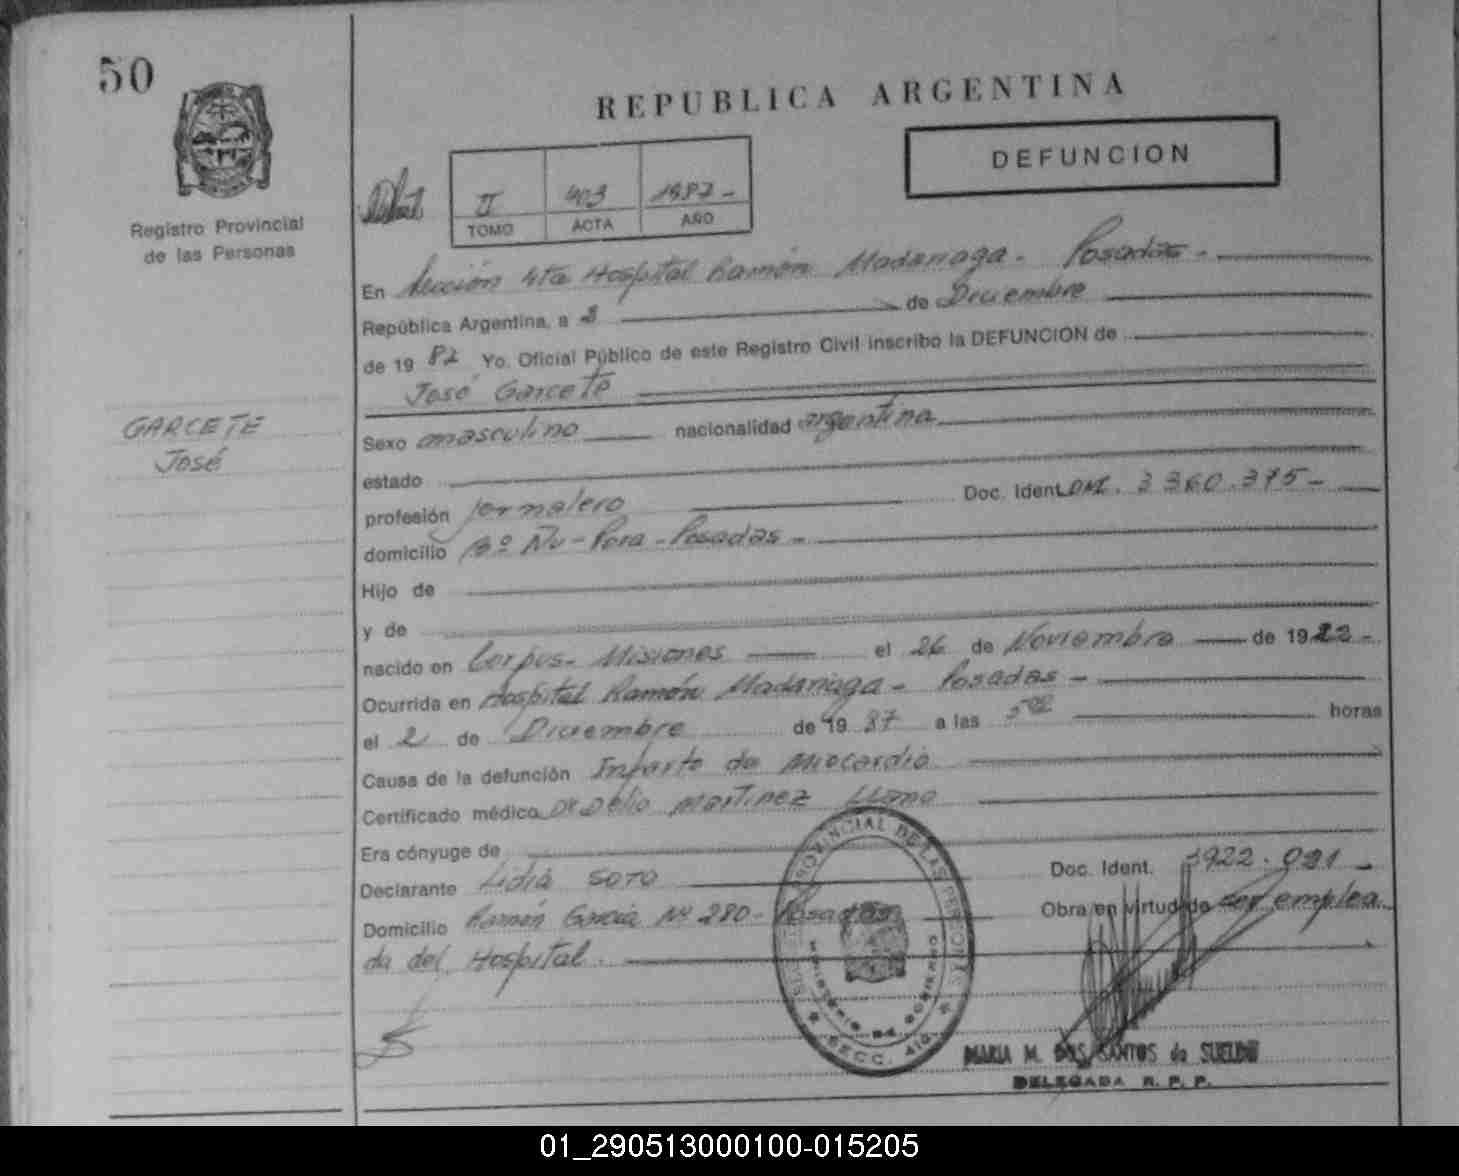 50
REPUBLICA ARGENTINA
DEFUNCION
II 403 1987 -
TOMO ACTA AÑO
Registro Provincial
de las Personas
En Sección 4ta Hospital Ramón Madariaga - Posadas -
República Argentina, a 3 de Diciembre
de 19 87 Yo. Oficial Público de este Registro Civil inscribo la DEFUNCION de
José Garcete
GARCETE
José
Sexo masculino nacionalidad argentina
estado
profesión jornalero Doc. Ident. DNI. 3360.375 -
domicilio Bº Ñu - Pora - Posadas -
Hijo de
y de
nacido en Corpus - Misiones el 26 de Noviembre de 1922 -
Ocurrida en Hospital Ramón Madariaga - Posadas -
el 2 de Diciembre de 19 87 a las 5 horas
Causa de la defunción Infarto de Miocardio
Certificado médico Dr Delio Martinez Llano
Era cónyuge de
Declarante Lidia Soto Doc. Ident. 3922.091 -
Domicilio Ramón García Nº 280 - Posadas Obra en virtud de ser emplea
da del Hospital.
PROVINCIAL DE LAS PERSONAS
MINISTERIO DE GOBIERNO
SECC. 4ta.
MARIA M. DOS SANTOS de SUELDO
DELEGADA R. P. P.
01_290513000100-015205